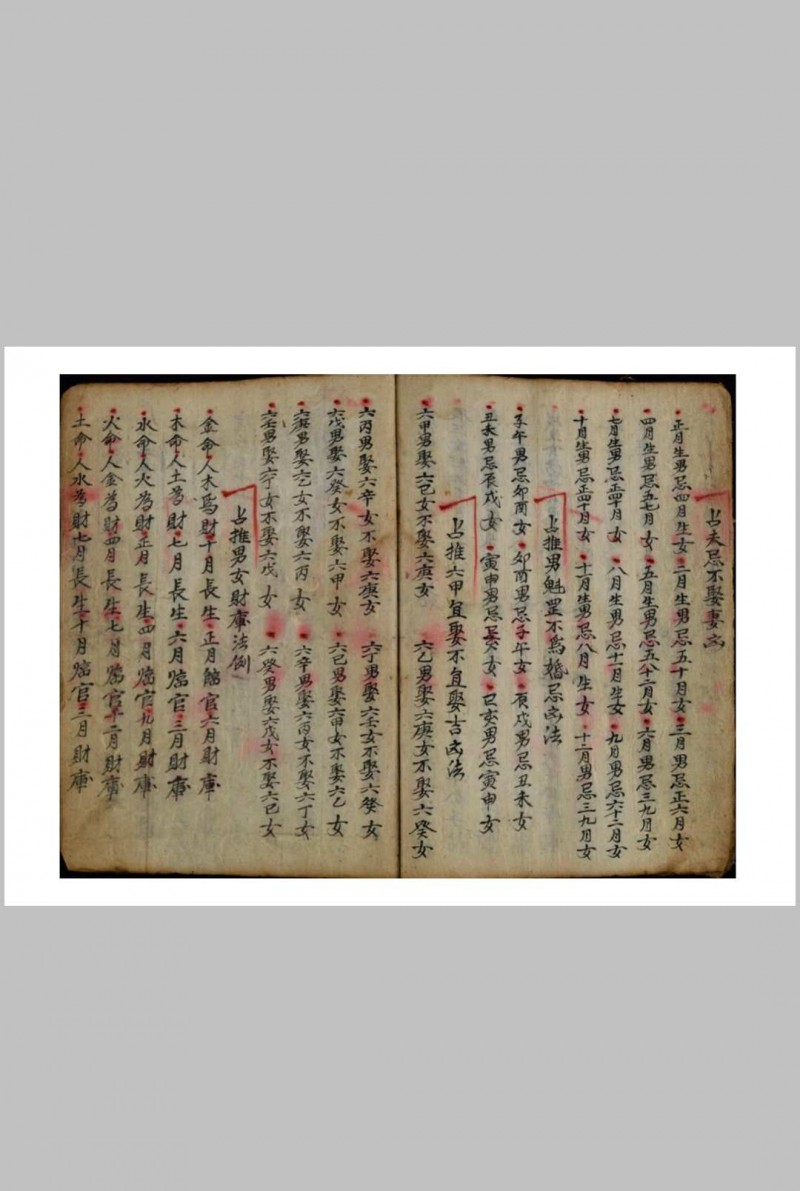 占夫忌不娶妻凶
正月生男忌四月生女 二月生男忌五十月女 三月男忌正六月女
四月生男忌五七月女 五月生男忌五十二月女 六月男忌三九月女
七月生男忌正四十月女 八月生男忌十月生女 九月男忌六十二月女
十月生男忌正四十月女 十一月生男忌八月生女 十二月男忌三九月女
占推男魁罡不為婚忌凶法
子午男忌卯酉女 卯酉男忌子午女 辰戌男忌丑未女
丑未男忌辰戌女 寅申男忌巳亥女 巳亥男忌寅申女
占推六甲宜娶不宜娶吉凶法
六甲男娶六己女不娶六庚女 六乙男娶六庚女不娶六癸女
六丙男娶六辛女不娶六庚女 六丁男娶六壬女不娶六癸女
六戊男娶六癸女不娶六甲女 六己男娶六甲女不娶六乙女
六庚男娶六乙女不娶六丙女 六辛男娶六丙女不娶六丁女
六壬男娶六丁女不娶六戊女 六癸男娶六戊女不娶六己女
占推男女財庫法例
金命人木為財十月長生正月臨官六月財庫
木命人土為財七月長生六月臨官三月財庫
水命人火為財正月長生四月臨官九月財庫
火命人金為財四月長生七月臨官十二月財庫
土命人水為財七月長生十月臨官三月財庫